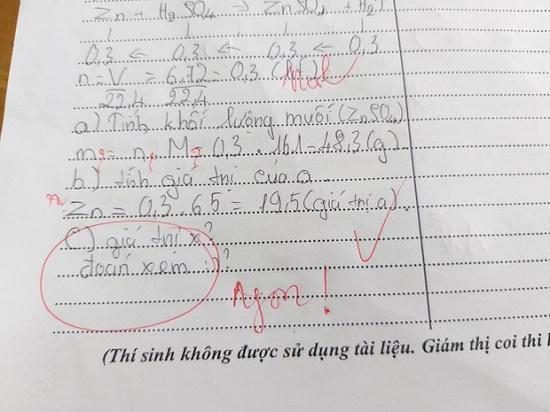 Zn + H2SO4 → ZnSO4 + H2↑
1 1 1 1
0,3 ← 0,3 ← 0,3 ← 0,3
n = V = 6,72 = 0,3 (mol)
22,4 22,4
a) Tính khối lượng muối (ZnSO4)
m = n . M = 0,3 . 161 = 48,3 (g)
b) tính giá trị của a
m Zn = 0,3 . 65 = 19,5 (giá trị a)
c) giá trị x?
đoán xem :)?
Ngon!
(Thí sinh không được sử dụng tài liệu. Giám thị coi thi